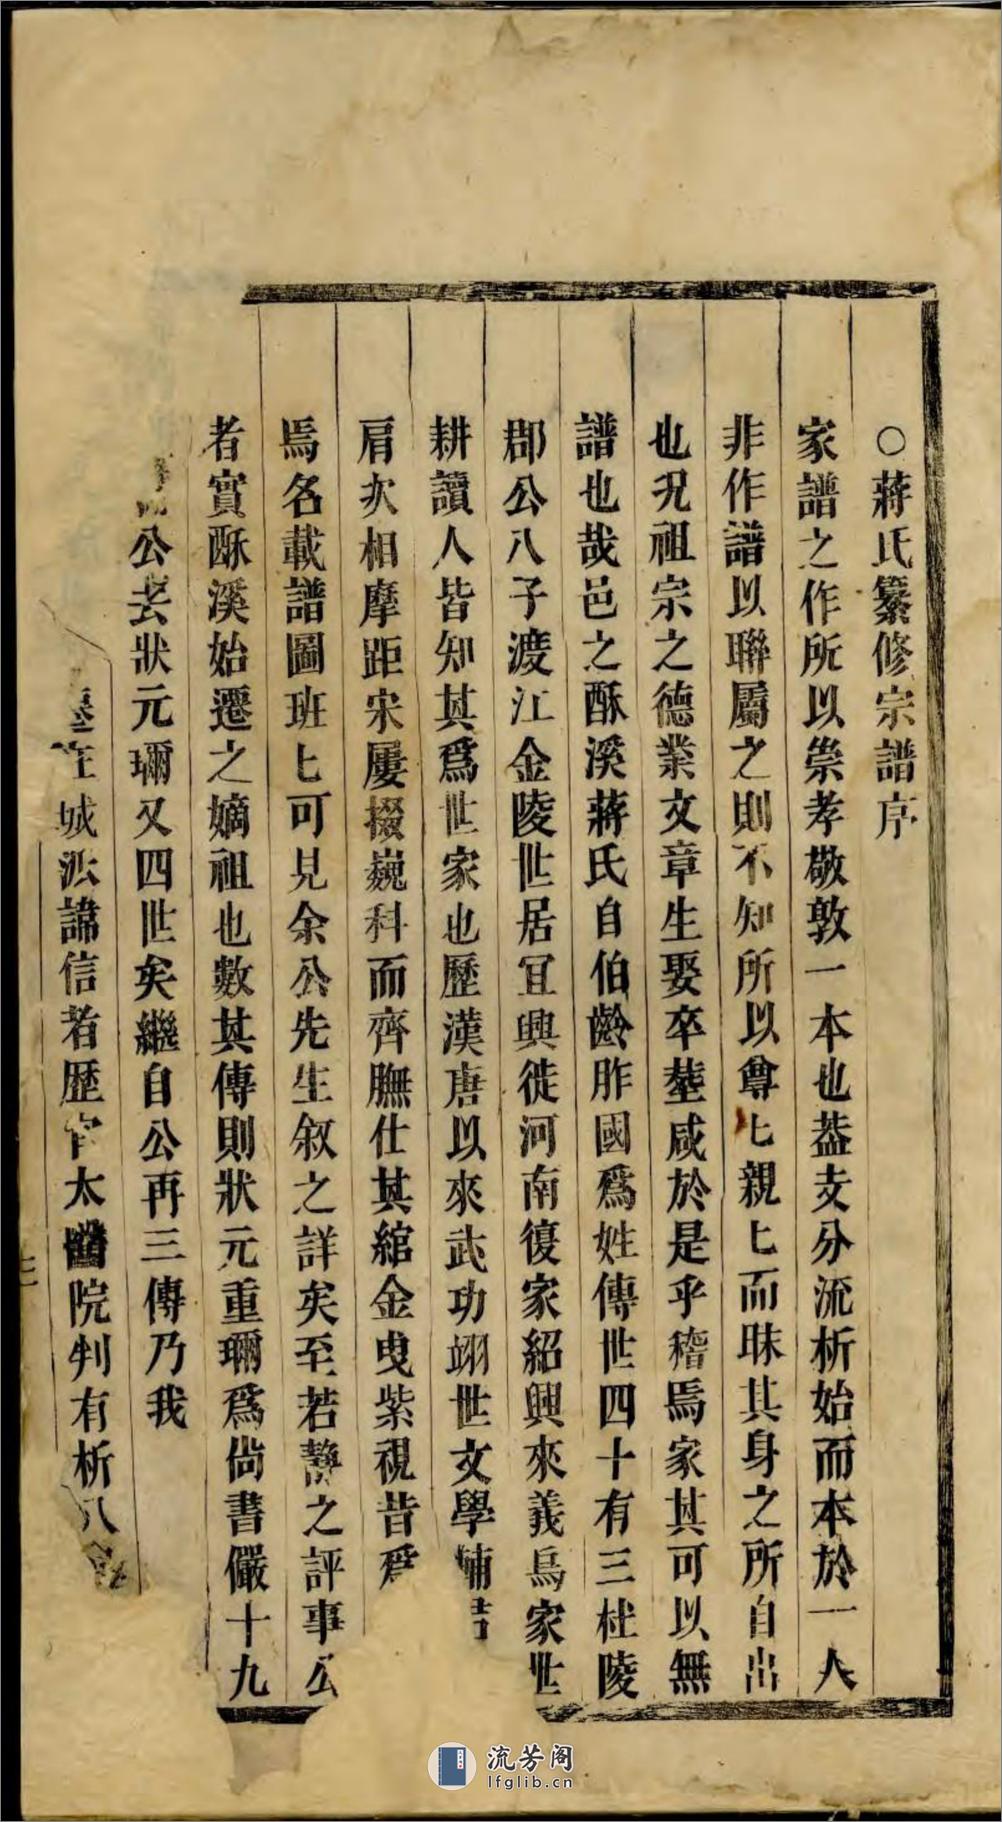 ○蔣氏纂修宗譜序
家譜之作所以崇孝敬敦一本也葢支分流析始而本於一人
非作譜以聯屬之則不知所以尊匕親匕而昧其身之所自出
也況祖宗之德業文章生娶卒塟咸於是乎稽焉家其可以無
譜也哉邑之酥溪蔣氏自伯齡胙國爲姓傳世四十有三杜陵
郡公八子渡江金陵世居宜興徙河南復家紹興來義烏家世
耕讀人皆知其爲世家也歷漢唐以來武功翊世文學
肩次相摩距宋屢掇巍科而齊膴仕其綰金曳紫視昔爲
焉名載譜圖班匕可見余公先生叙之詳矣至若静之評事公
者實酥溪始遷之嫡祖也數其傳則狀元重珎爲尚書儼十九
公去狀元珎又四世矣繼自公再三傳乃我
在城派諱信者歴官太醫院判有析八
流芳阁
lfglib.cn